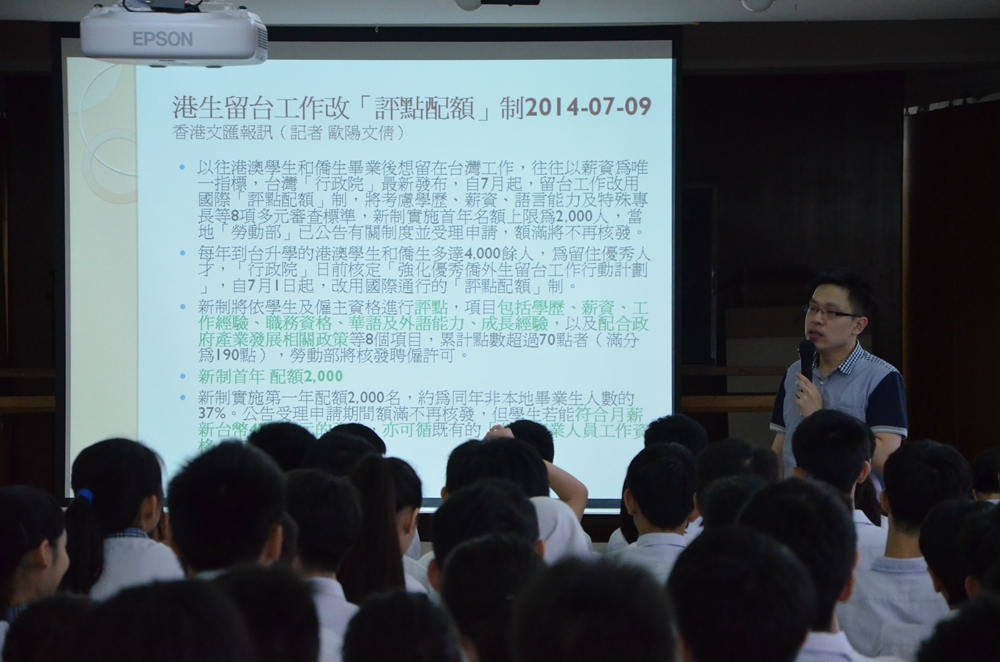 EPSON
港生留台工作改「評點配額」制2014-07-09
香港文匯報訊（記者 歐陽文倩）
• 以往港澳學生和僑生畢業後想留在台灣工作，往往以薪資爲唯
一指標，台灣「行政院」最新發布，自7月起，留台工作改用
國際「評點配額」制，將考慮學歷、薪資、語言能力及特殊專
長等8項多元審查標準，新制實施首年名額上限爲2,000人，當
地「勞動部」已公告有關制度並受理申請，額滿將不再核發。
• 每年到台升學的港澳學生和僑生多達4,000餘人，爲留住優秀人
才，「行政院」日前核定「強化優秀僑外生留台工作行動計劃
」，自7月1日起，改用國際通行的「評點配額」制。
• 新制將依學生及僱主資格進行評點，項目包括學歷、薪資、工
作經驗、職務資格、華語及外語能力、成長經驗，以及配合政
府產業發展相關政策等8個項目，累計點數超過70點者（滿分
爲190點），勞動部將核發聘僱許可。
• 新制首年 配額2,000
• 新制實施第一年配額2,000名，約爲同年非本地畢業生人數的
37%。公告受理申請期間額滿不再核發，但學生若能符合月薪
新台幣 亦可循既有的 業人員工作資